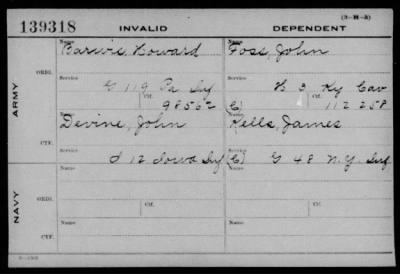 139318 INVALID DEPENDENT (3-H-5)
Name Name
Barvis Howard Foss, John
ORIG. Service Service
G 119 Pa Inf H 3 Ky Cav
Ctf. Ctf.
98562 (C) 112258
ARMY
Name Name
Devine, John Kells, James
CTF. Service Service
I 12 Iowa Inf (C) G 48 N.Y. Inf
NAVY
Name Name
ORIG. Ctf. Ctf.
Name Name
CTF.